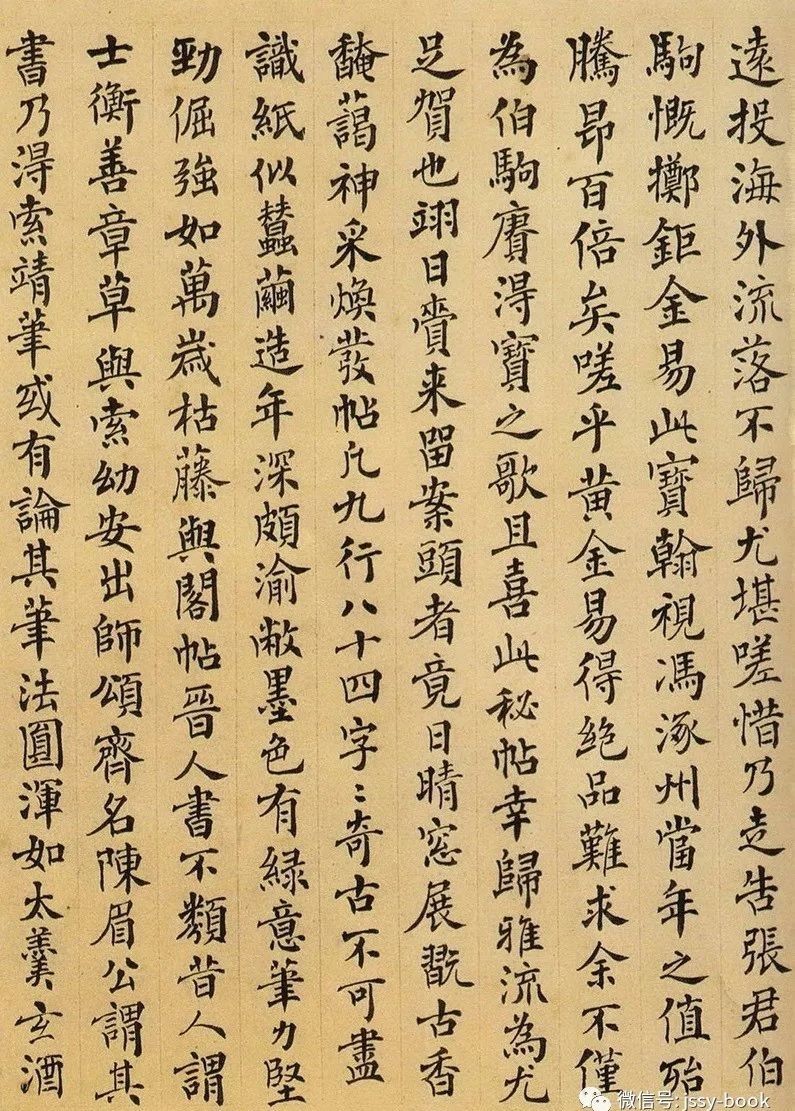 遠投海外流落不歸尤堪嗟惜乃走告張君伯
駒慨擲鉅金易此寶翰視馮涿州當年之值殆
騰昂百倍矣嗟乎黃金易得絕品難求余不僅
為伯駒賡得寶之歌且喜此秘帖幸歸雅流為尤
足賀也翊日賫来留案頭者竟日晴窓展翫古香
馣藹神采煥發帖凡九行八十四字〻奇古不可盡
識紙似蠶繭造年深頗渝敝墨色有綠意筆力堅
勁倔強如萬歲枯藤與閣帖晉人書不類昔人謂
士衡善章草與索幼安出師頌齊名陳眉公謂其
書乃得索靖筆或有論其筆法圓渾如太羹玄酒
微信号: jssy-book